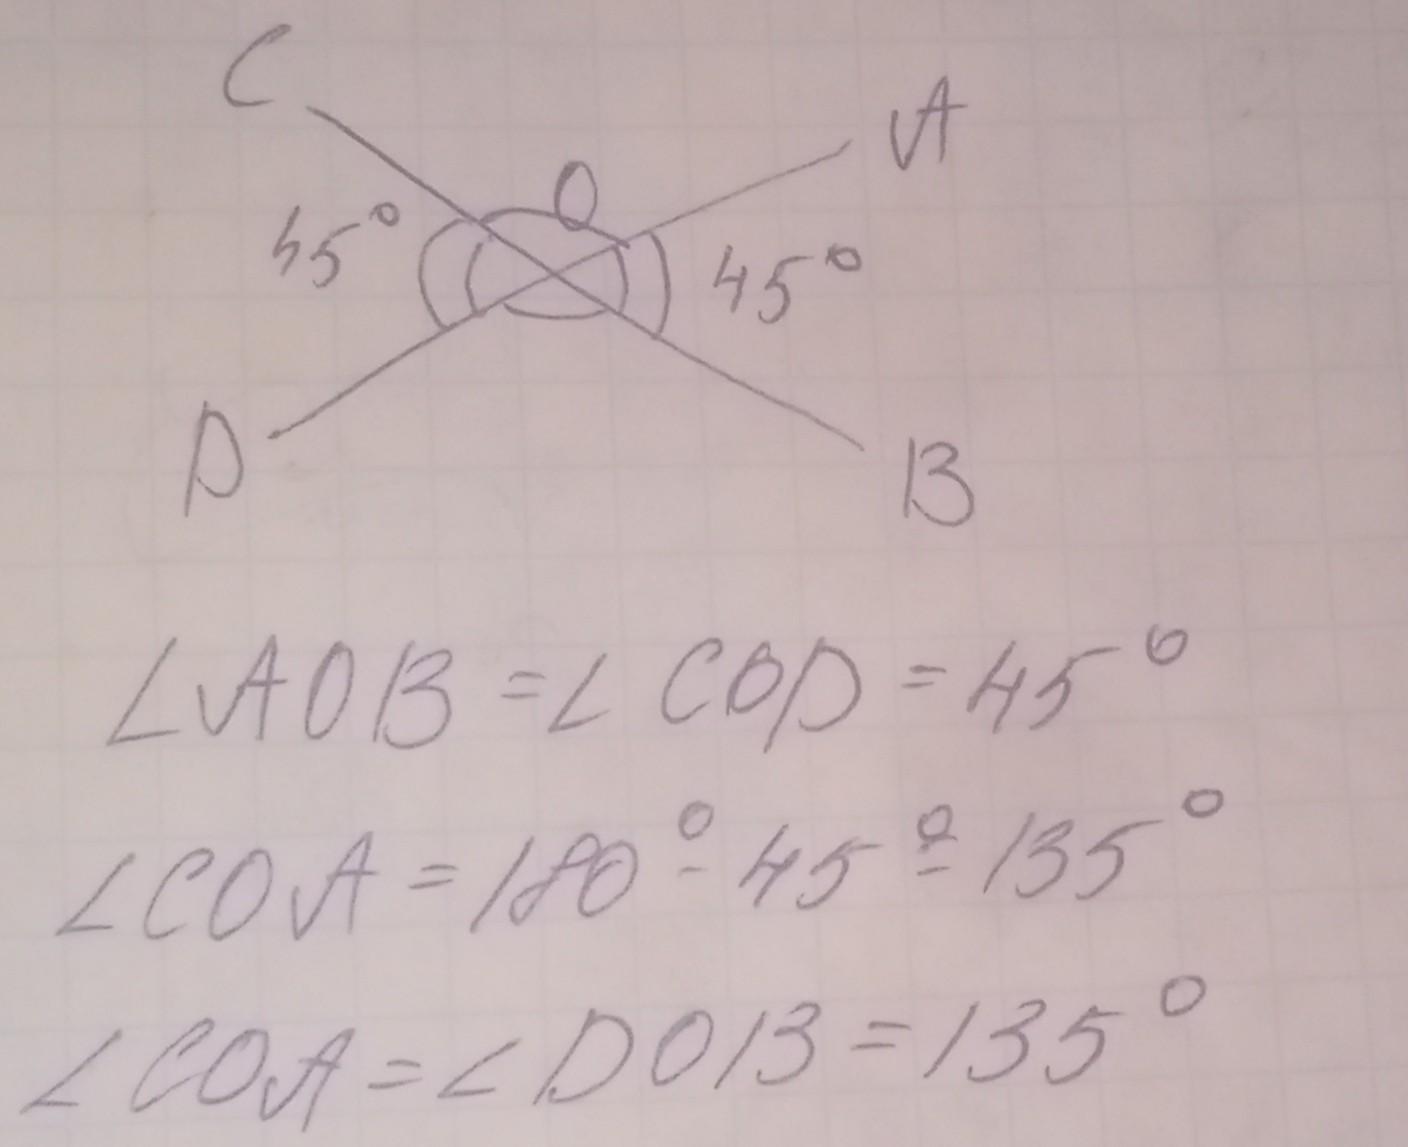 C
A
O
45°
45°
D
B
∠AOB = ∠COD = 45°
∠COA = 180° - 45° = 135°
∠COA = ∠DOB = 135°